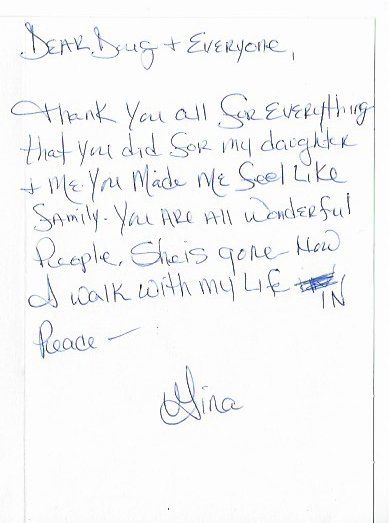 Dear Doug + Everyone,
Thank You all for Everything
that you did for my daughter
+ Me. You Made Me feel Like
family. You Are All Wonderful
People. She is gone Now
I walk with my Life IN
Peace —
Gina